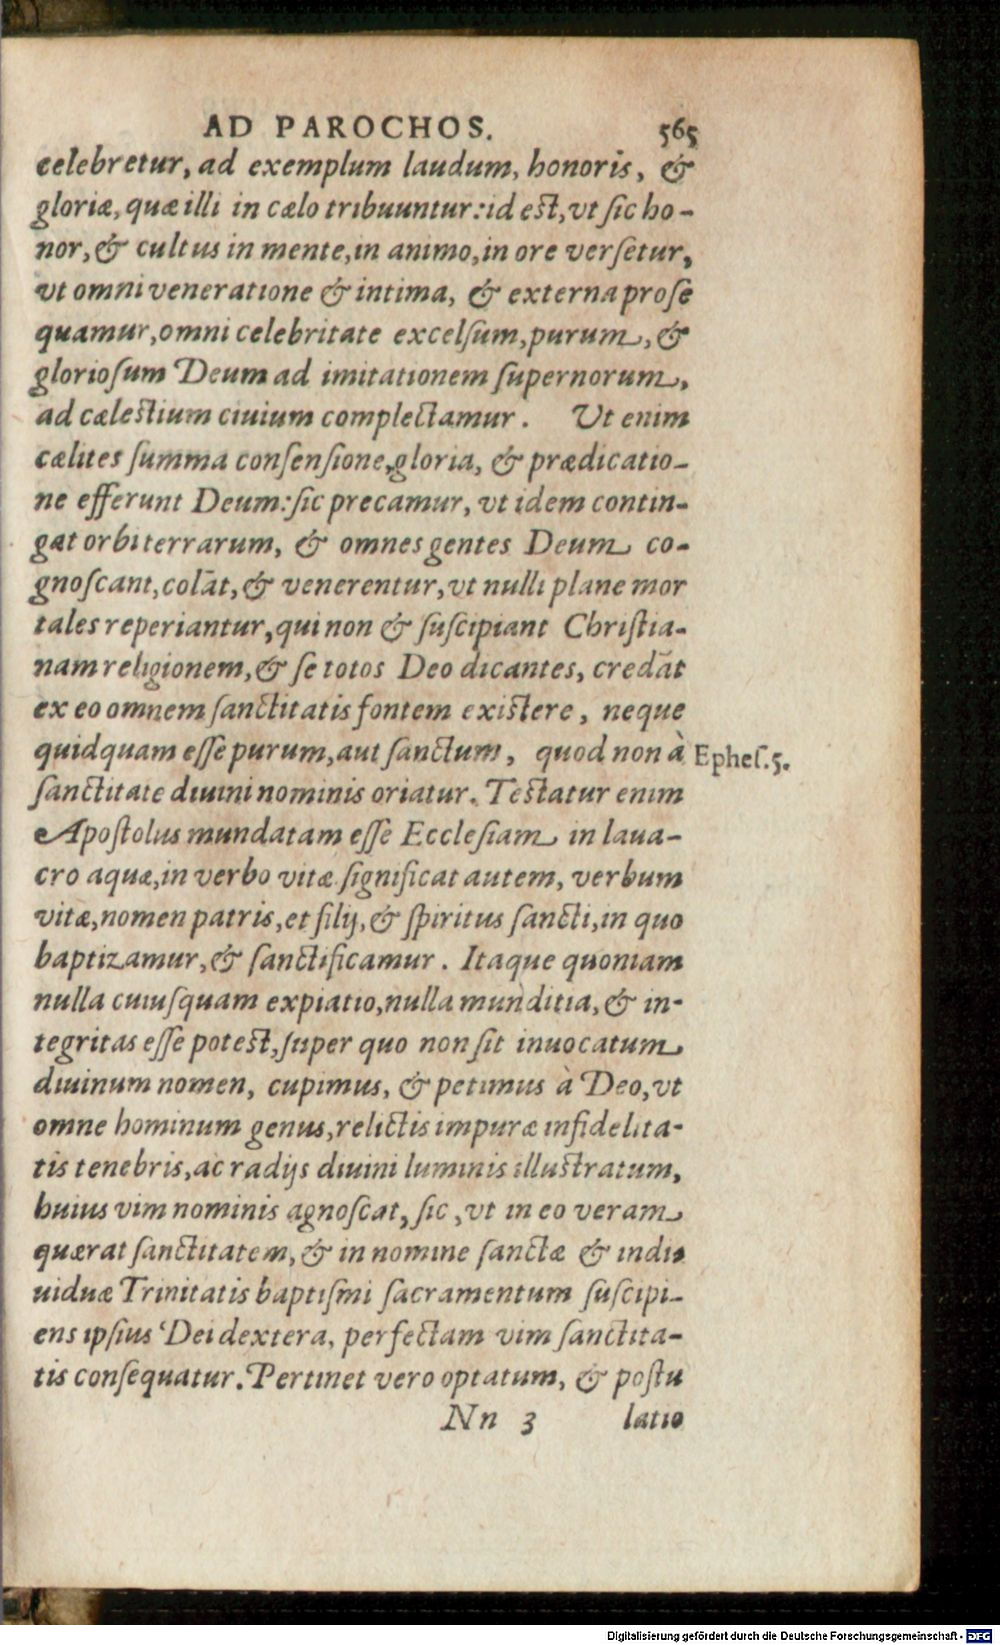 AD PAROCHOS. 565
celebretur, ad exemplum laudum, honoris, &
gloriæ, quæ illi in cælo tribuuntur: id eſt, vt ſic ho-
nor, & cultus in mente, in animo, in ore verſetur,
vt omni veneratione & intima, & externa proſe
quamur, omni celebritate excelſum, purum, &
glorioſum Deum ad imitationem ſupernorum,
ad cæleſtium ciuium complectamur. Ut enim
cælites ſumma conſenſione, gloria, & prædicatio-
ne efferunt Deum: ſic precamur, vt idem contin-
gat orbi terrarum, & omnes gentes Deum co-
gnoſcant, colāt, & venerentur, vt nulli plane mor
tales reperiantur, qui non & ſuſcipiant Chriſtia-
nam religionem, & ſe totos Deo dicantes, credāt
ex eo omnem ſanctitatis fontem exiſtere, neque
quidquam eſſe purum, aut ſanctum, quod non à Epheſ. 5.
ſanctitate diuini nominis oriatur. Teſtatur enim
Apoſtolus mundatam eſſe Eccleſiam in laua-
cro aquæ, in verbo vitæ. ſignificat autem, verbum
vitæ, nomen patris, et filij, & ſpiritus ſancti, in quo
baptizamur, & ſanctificamur. Itaque quoniam
nulla cuiuſquam expiatio, nulla munditia, & in-
tegritas eſſe poteſt, ſuper quo non ſit inuocatum
diuinum nomen, cupimus, & petimus à Deo, vt
omne hominum genus, relictis impuræ infidelita-
tis tenebris, ac radijs diuini luminis illuſtratum,
huius vim nominis agnoſcat, ſic, vt in eo veram
quærat ſanctitatem, & in nomine ſanctæ & indi-
uiduæ Trinitatis baptiſmi ſacramentum ſuſcipi-
ens ipſius Dei dextera, perfectam vim ſanctita-
tis conſequatur. Pertinet vero optatum, & poſtu
Nn 3 latio
Digitalisierung gefördert durch die Deutsche Forschungsgemeinschaft - DFG